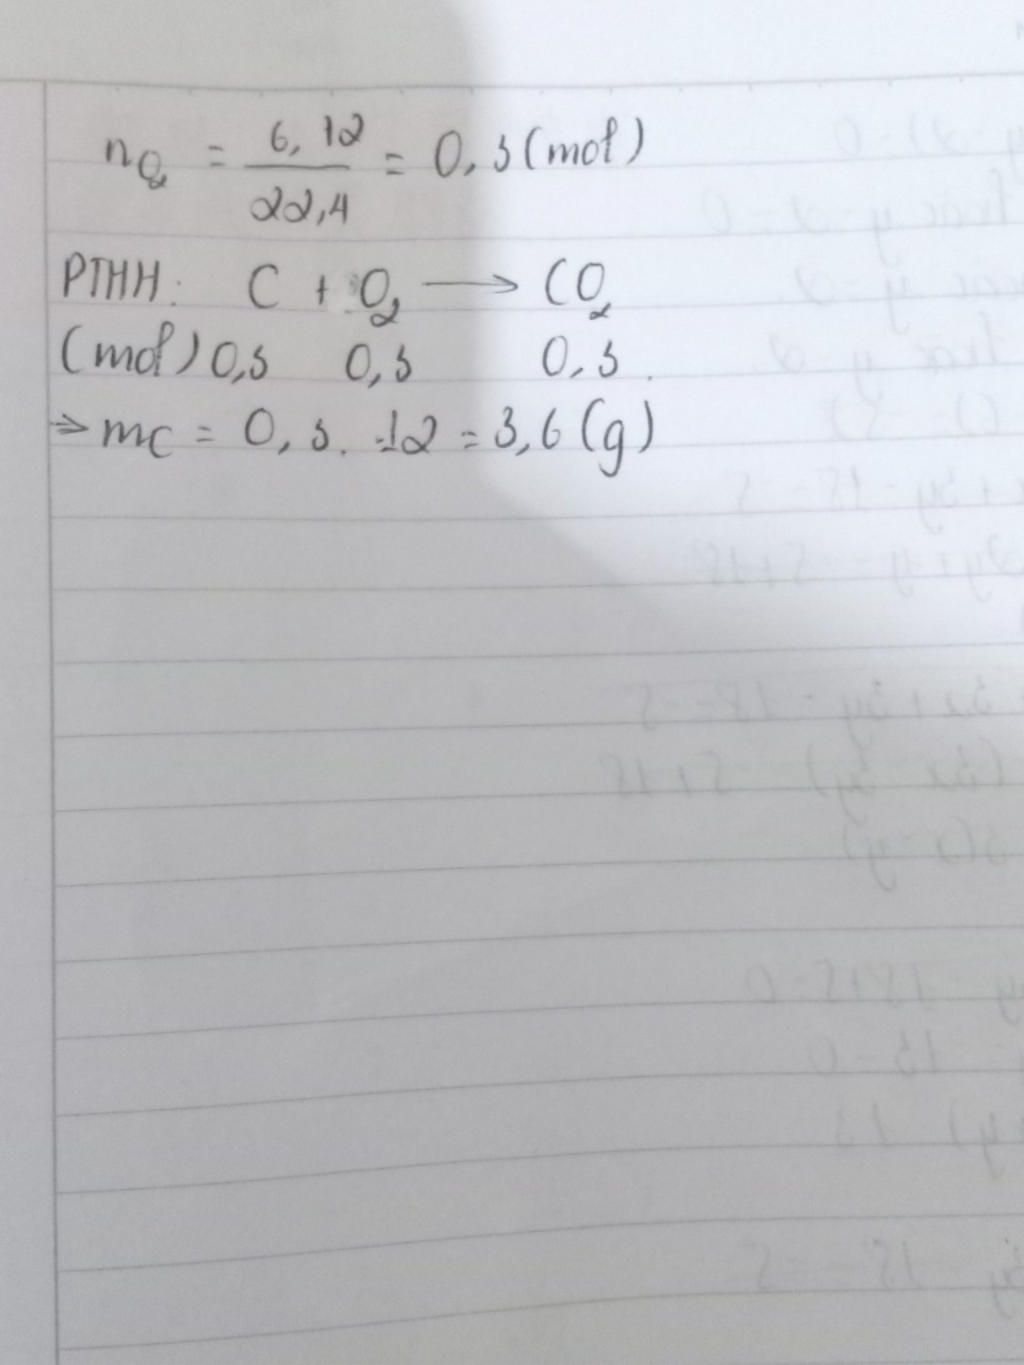 nO2 = 6,12/22,4 = 0,3 (mol)
PTHH: C + O2 → CO2
(mol) 0,3 0,3 0,3
⇒ mC = 0,3 . 12 = 3,6 (g)